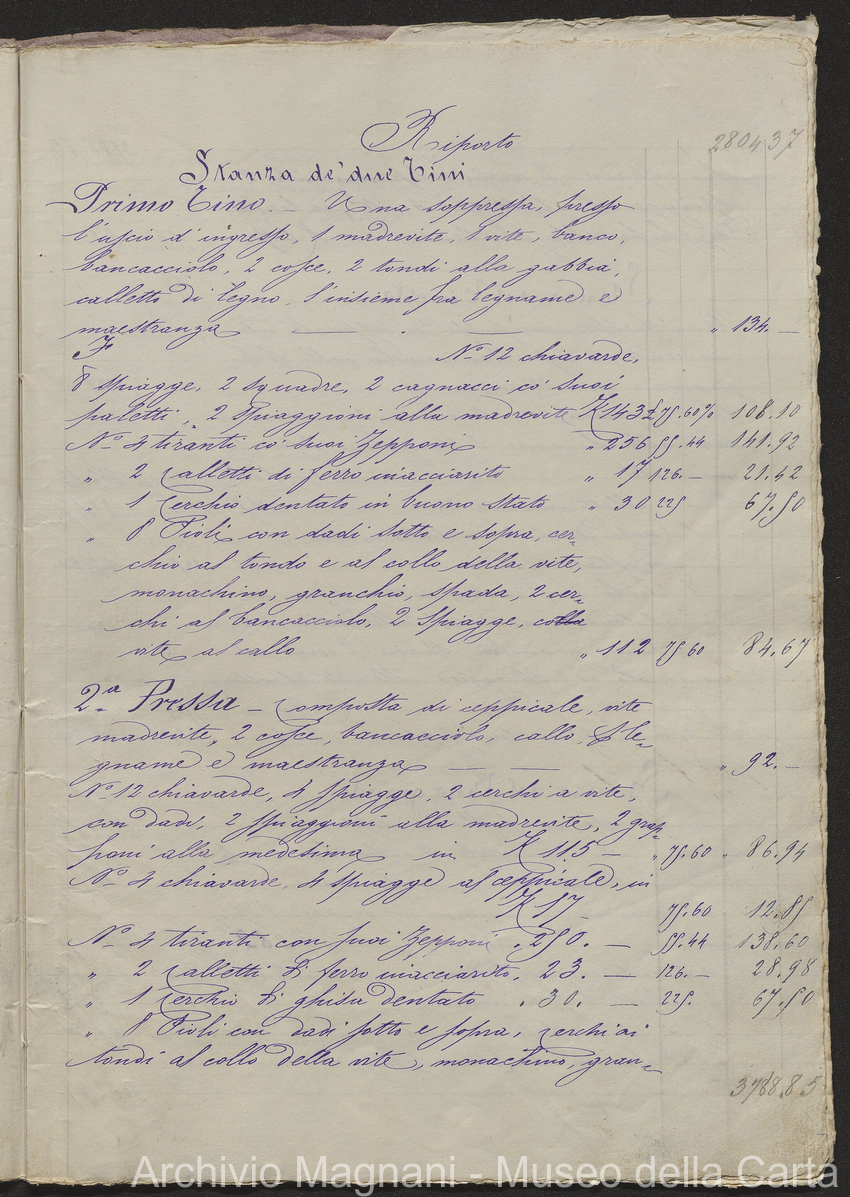 Riporto 2804 37
Stanza de' due Tini
Primo Tino. – Una soppressa, presso
l'uscio d'ingresso, 1 madrevite, 1 vite, banco,
bancacciolo, 2 cosce, 2 tondi alla gabbia,
calletto di legno, l'insieme fra legname e
maestranza — . — " 134. –
F N.o 12 chiavarde,
8 spiagge, 2 squadre, 2 cagnacci co' suoi
paletti, 2 spiaggioni alla madrevite K 143 75.60 % 108.10
N.o 4 tiranti co' suoi Zepponi " 256 55.44 141.92
" 2 Calletti di ferro inacciarito " 17 126. – 21.42
" 1 Cerchio dentato in buono stato " 30 225 67.50
" 8 Pioli con dadi sotto e sopra, cer-
chio al tondo e al collo della vite,
monachino, granchio, spada, 2 cer-
chi al bancacciolo, 2 spiagge, colla
vite al callo " 112 75 60 84.67
2.a Pressa – Composta di ceppicale, vite
madrevite, 2 cosce, bancacciolo, callo, le-
gname e maestranza — — " 92. –
N.o 12 chiavarde, 4 spiagge, 2 cerchi a vite,
con dadi, 2 spiaggioni alla madrevite, 2 grap-
poni alla medesima in K 115 – " 75.60 " 86.94
N.o 4 chiavarde, 4 spiagge al ceppicale, in
K 17 – 75.60 12.85
N.o 4 tiranti con suoi Zepponi . 250. – 55.44 138.60
" 2 Calletti di ferro inacciarito, 23. – 126. – 28.98
" 1 Cerchio di ghisa dentato . 30. – 225. 67.50
" 8 Pioli con dadi sotto e sopra, cerchi ai
tondi al collo della vite, monachino, gran-
3788.85
Archivio Magnani - Museo della Carta